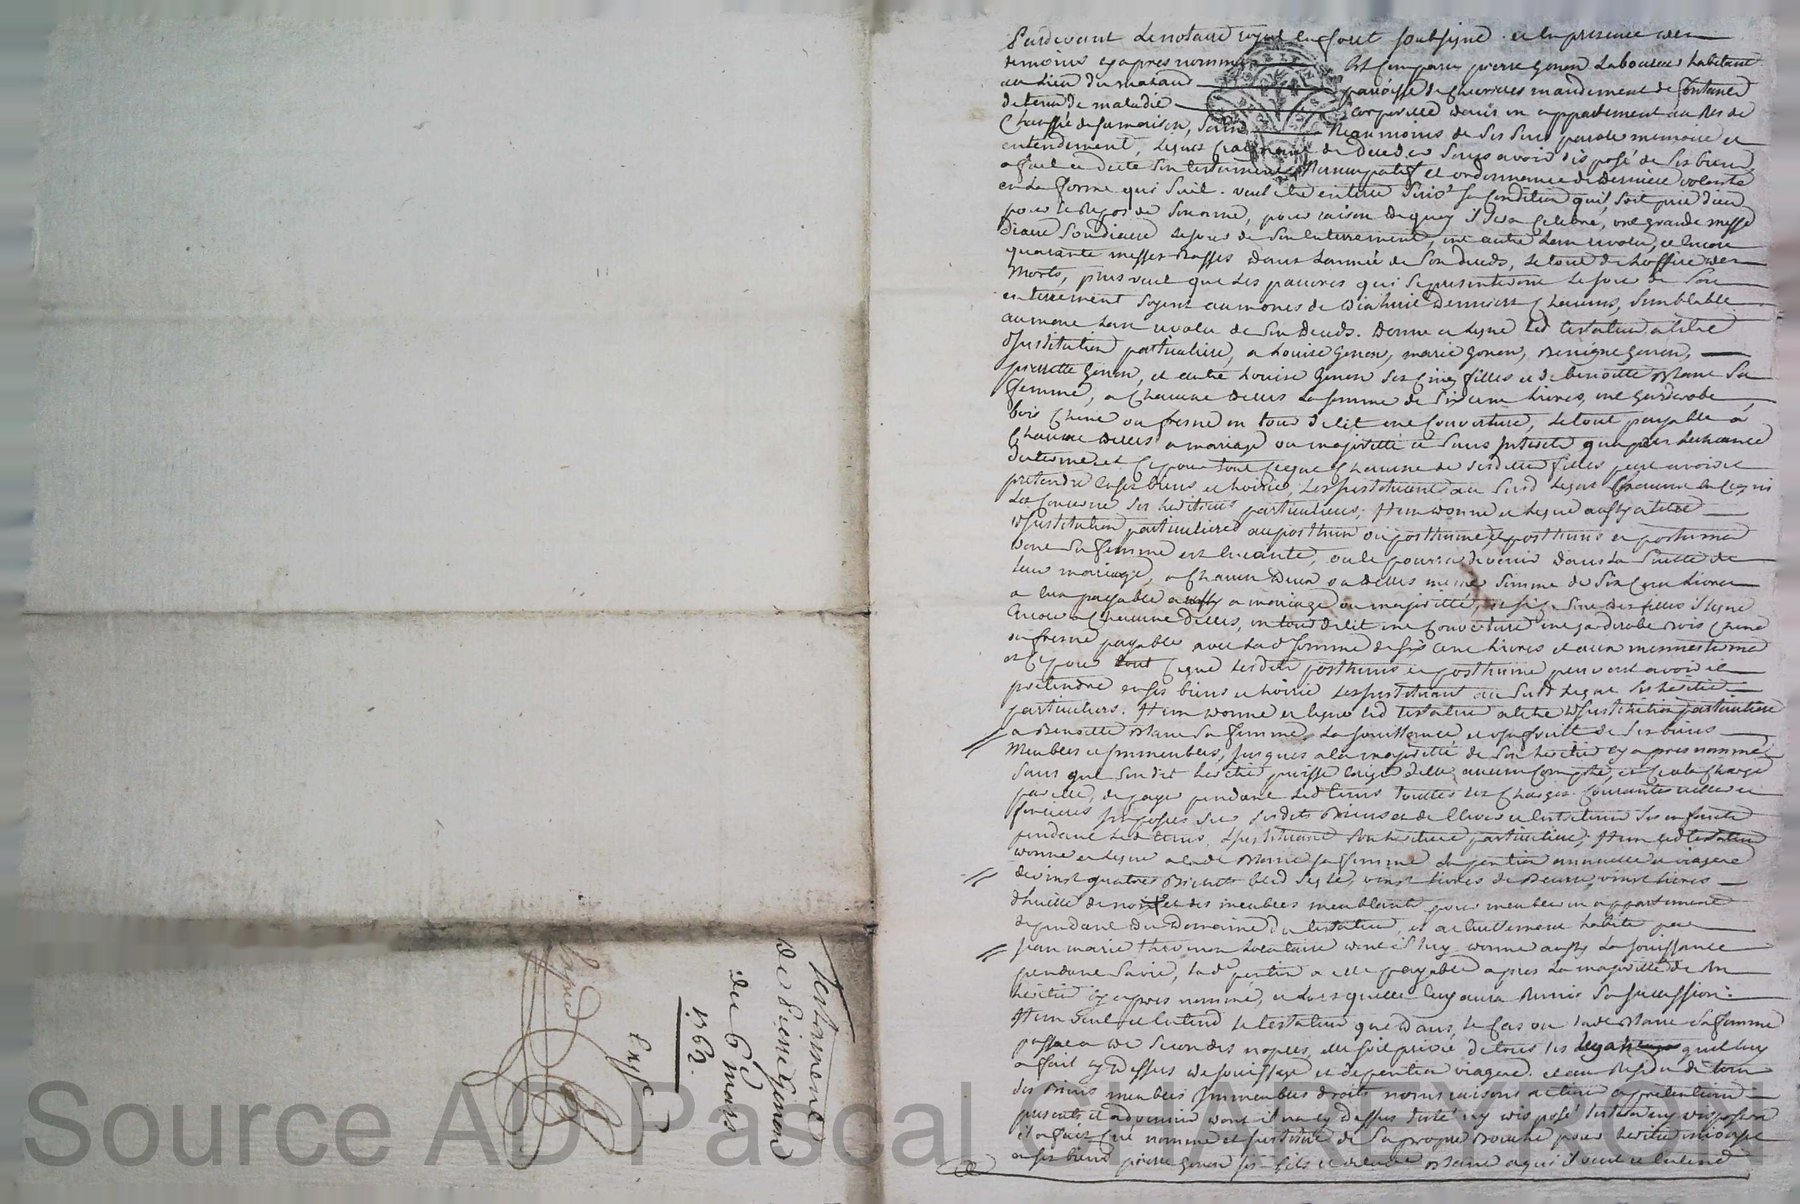 Pardevant Le notaire royal en foret soubsigné et en presence des
temoins cy apres nommes Est Comparu pierre Gonon Laboureur habitant
au Lieu du paroisse de Chevrieres mandement de fontanes
detenu de maladie Corporelle dans un appartement au Res de
Chaussée de sa maison, Sain Neanmoins de Ses Sens parole memoire et
entendement, Lequel de deceder Sans avoir disposé de Ses biens
a fait et dicté Son testament Nuncupatif et ordonnance de derniere volonté
en La forme qui Suit. veut etre enterré Suiv.t Sa Condition qu'il Soit prié dieu
pour Le Repos de Son ame, pour raison de quoy il Sera Celebré, une grande messe
diacre Soudiacre Le jour de Son Enterrement, une autre L'an revolu, et encore
quarante messes Basses dans L'année de Son deceds, Le tout de L'office des
Morts, plus veut que Les pauvres qui Se presenteront Le jour de Son
enterrement Soyent aumones de dixhuit Deniers Chacuns, Semblable
aumone L'an revolu de Son deceds. Donne et Legue Led testateur a titre
d'Institution particuliere, a Louise Gonon, marie Gonon, Benigne Gonon,
pierrette Gonon, et autre Louise Gonon Ses Cinq filles et de benoitte Blanc Sa
femme, a Chacune d'elles La Somme de Six cent Livres, une garderobe
bois Chene ou fresne un tour de Lit une Couverture, Le tout payable a
Chacune d'elles a mariage ou majorité et Sans Interets qu'apres L'echeance
du terme, et Ce pour tout Ce que Chacune de Ses dites filles peut avoir et
pretendre en Ses biens et hoirie, Les Instituant au Susd Legat Chacune en Ce qui
La Concerne Ses heritieres particulieres; Item donne et Legue aussy a titre
d'Institution particuliere au posthume ou posthume, et posthumes
dont Sa femme est Enceinte, ou Le pourra devenir dans La Suitte de
Leur mariage, a Chacun d'eux ou d'elles meme Somme de Six Cent Livres
a eux payable a mariage ou majorité, et Si Ce Sont des filles il Legue
Encore a Chacune d'elles, un tour de Lit une Couverture une garderobe Bois Chene
ou fresne payable avec Lad Somme de Six cent Livres et aux memes termes
et Ce pour tout Ce que Lesdits posthumes et posthume peuvent avoir et
pretendre en Ses biens et hoirie Les Instituant au Susd Legat Ses heritiers
particuliers. Item donne et Legue Led testateur a titre d'Institution particuliere
a Benoitte Blanc Sa femme, La Jouissance et usufruit de Ses biens
Meubles et Immeubles, Jusques a La majorité de Son heritier Cy apres nommé
Sans que Son dit heritier puisse Exiger d'elle aucun Compte, et Ce a La Charge
par elle, de payer pendant Led tems touttes Les Charges Courantes
foncieres Imposées Sur Sesdits Biens et d'Elever et Entretenir Ses enfants
pendant Led tems, L'Instituant Son heritiere particuliere; Item Led testateur
donne et Legue a Lade Blanc Sa femme La pention annuelle et viagere
de vingt quatres Bichets bled Segle, vingt Livres de Beurre, vingt Livres
d'huille de noix et des meubles meublants pour meubler un appartement
dependant du Domaine du testateur, et actuellement habité par
Jean marie Thevenon Locataire dont il Luy donne aussy La Jouissance
pendant Sa vie, Lad.e pention a elle payable apres La majorité de Son
heritier Cy apres nommé, et Lors qu'elle Luy aura Remis Sa Succession:
Item veut et Entend Le testateur que dans Le Cas ou Lade Blanc Sa femme
passat a de Secondes nopces, elle Soit privée de tous les Legats qu'il Luy
a fait Cy dessus de Jouissance et de pention viagere. et au Residu de tous
Ses Biens meubles Immeubles droits noms raisons actions et pretentions
presents et advenir dont il n'a Cy dessus testé ny disposé
il a fait Cree nommé et Institué de Sa propre Bouche pour heritier universel
en Ses biens pierre Gonon Son fils et de Lade Blanc a qui il veut et Entend
Testament
de Pierre Gonon
du 6e mars
1762.
Source AD Pascal CHAREYRON